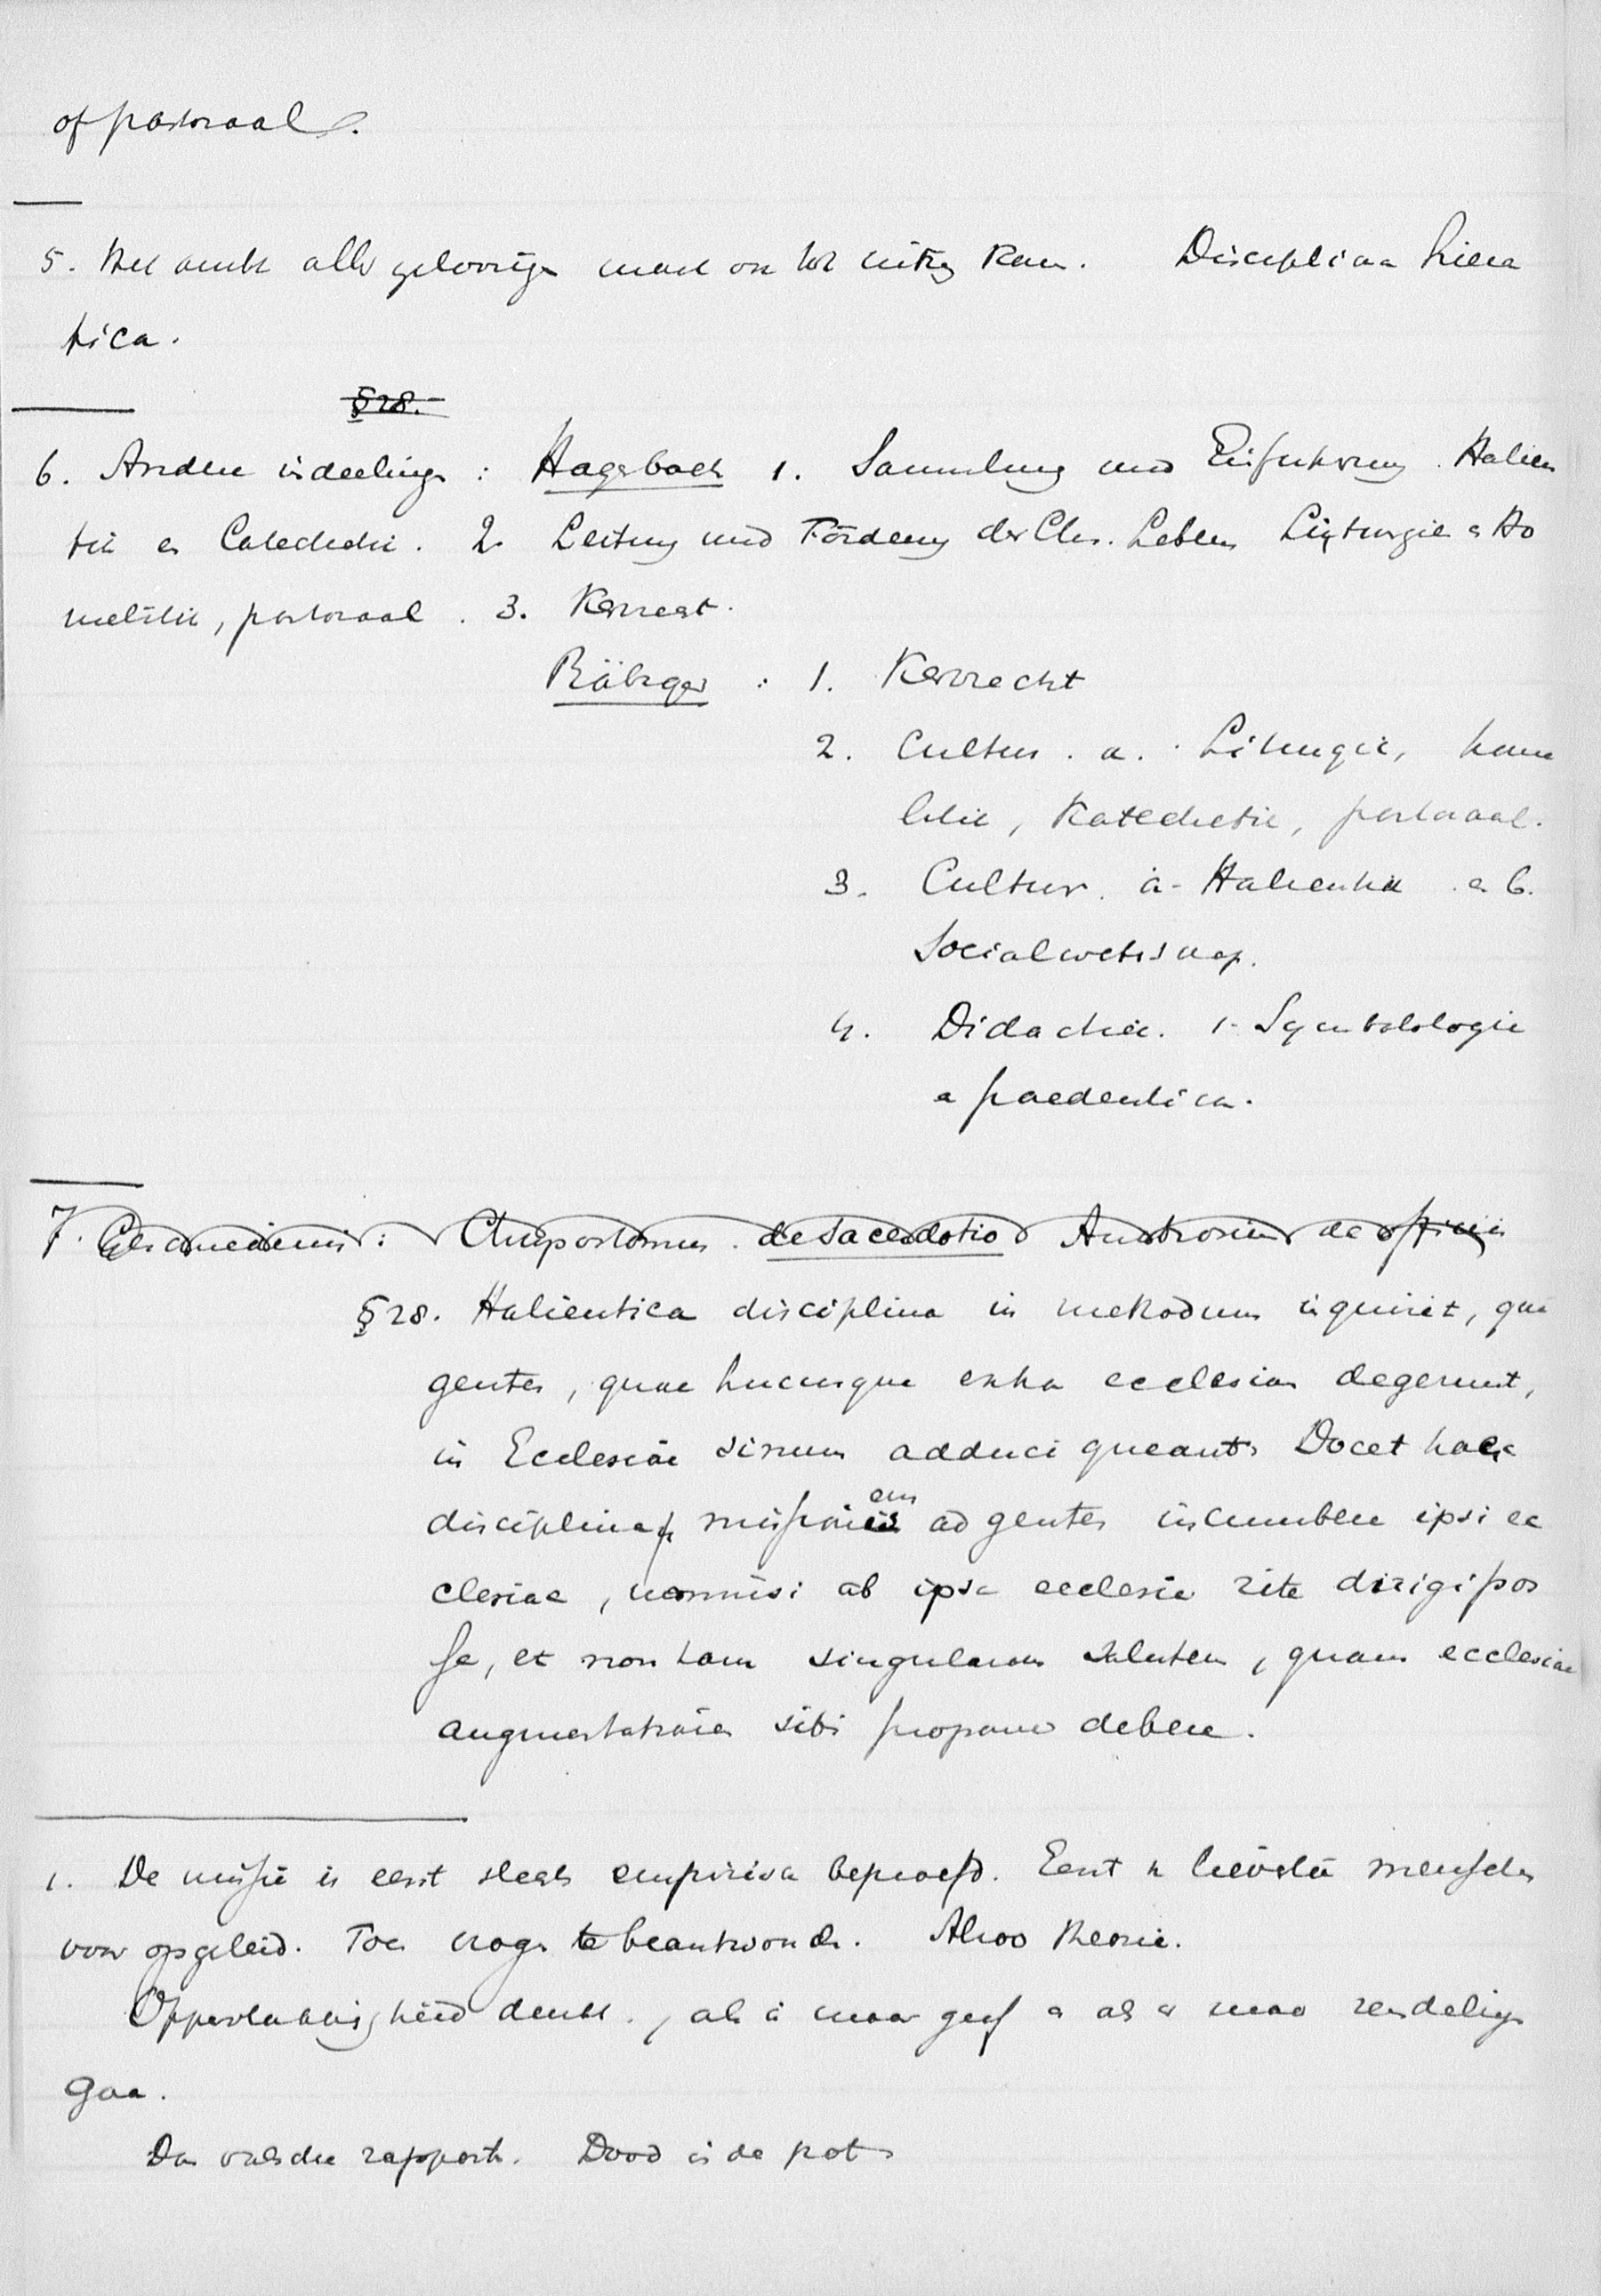 of pastoraal.
5. Het ambt aller geloovigen maakt Disciplina Hiera
tica.
§ 28.
6. Andere indeelingen : Hagebach 1. Sammlung und Einfuhrung. Halieu
tie en Catechetie. 2. Leitung und Förderung des Chr. Lebens Liturgie en Ho
miletie, pastoraal. 3. Kerrecht.
Räbiger : 1. Kerrecht
2. Cultus. a. Liturgie, homi
letie, Katechetie, pastoraal.
3. Cultur. a. Halieutik en b.
Socialwetensch.
4. Didachie. 1. Symbolologie
en paedeutica.
7. Chrysostomus. de Sacerdotio Ambrosius de officiis
§ 28. Halieutica disciplina in methodum inquirit, qua
gentes, quae hucusque extra ecclesiam degerunt,
in Ecclesiae sinum adduci queant. Docet haec
disciplina missionem ad gentes incumbere ipsi ec
clesiae, nonnisi ab ipsa ecclesia rite dirigi pos
se, et non tam singulorum salutem, quam ecclesiae
augmentationem sibi proponere debere.
1. De missie is eerst steeds empirisch beproefd. Eerst menschen
voor opgeleid. Toen vragen te beantwoorden. Alzoo theorie.
Oppervlakkigheid denkt, als ik maar geef en als er maar zendelingen
gaan.
Dan valsche rapporten. Dood in de pot.